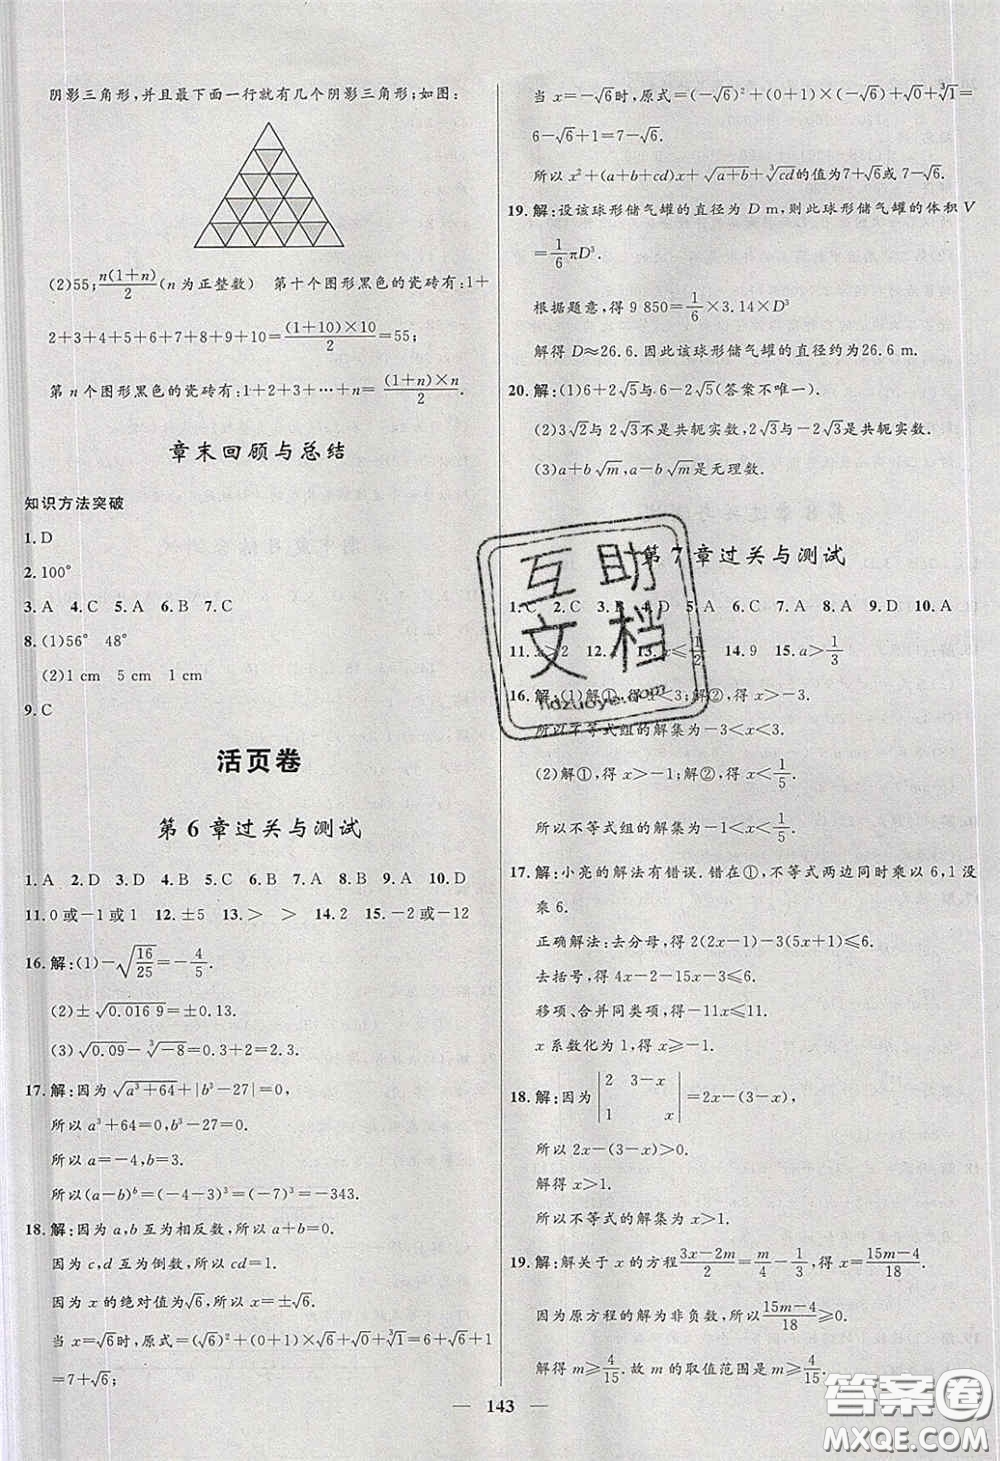 阴影三角形,并且最下面一行就有几个阴影三角形;如图:
(2)55;n(1+n)/2(n 为正整数) 第十个图形黑色的瓷砖有:1+
2+3+4+5+6+7+8+9+10=(1+10)×10/2=55;
第 n 个图形黑色的瓷砖有:1+2+3+…+n=(1+n)×n/2.
章末回顾与总结
知识方法突破
1.D
2.100°
3.A 4.C 5.A 6.B 7.C
8.(1)56° 48°
(2)1 cm 5 cm
9.C
活页卷
第 6 章过关与测试
1.A 2.D 3.D 4.C 5.B 6.B 7.A 8.B 9.A 10.D
11.0 或-1 或 1 12.±5 13.> > 14.2 15.-2 或-12
16.解:(1)-√(16/25)=-4/5.
(2)±√0.016 9=±0.13.
(3)√0.09-∛-8=0.3+2=2.3.
17.解:因为√(a³+64)+|b³-27|=0,
所以 a³+64=0,b³-27=0.
所以 a=-4,b=3.
所以(a-b)ᵇ=(-4-3)³=(-7)³=-343.
18.解:因为 a,b 互为相反数,所以 a+b=0.
因为 c,d 互为倒数,所以 cd=1.
因为 x 的绝对值为√6,所以 x=±√6.
当 x=√6时,原式=(√6)²+(0+1)×√6+√0+∛1=6+√6+1
=7+√6;
当 x=-√6时,原式=(-√6)²+(0+1)×(-√6)+√0+∛1=
6-√6+1=7-√6.
所以 x²+(a+b+cd)x+√(a+b)+∛cd的值为7+√6或 7-√6.
19.解:设该球形储气罐的直径为 D m,则此球形储气罐的体积 V
=1/6πD³.
根据题意,得 9 850=1/6×3.14×D³
解得 D≈26.6.因此该球形储气罐的直径约为 26.6 m.
20.解:(1)6+2√5与 6-2√5(答案不唯一).
(2)3√2与 2√3不是共轭实数,2√3与-2√3是共轭实数.
(3)a+b√m,a-b√m是无理数.
第 7 章过关与测试
1.C 2.C 3.B 4.D 5.A 6.B 7.D 8.A 9.D 10.A
11.x>2 12.4 13.x≤1/2 14.9 15.a>1/3
16.解:(1)解①,得 x<3;解②,得 x>-3.
所以不等式组的解集为-3<x<3.
(2)解①,得 x>-1;解②,得 x<1/5.
所以不等式组的解集为-1<x<1/5.
17.解:小亮的解法有错误.错在①,不等式两边同时乘以 6,1 没
乘 6.
正确解法:去分母,得 2(2x-1)-3(5x+1)≤6.
去括号,得 4x-2-15x-3≤6.
移项、合并同类项,得-11x≤11.
x 系数化为 1,得 x≥-1.
18.解:因为|2 3-x
1 x|=2x-(3-x),
所以 2x-(3-x)>0.
解得 x>1.
所以不等式的解集为 x>1.
19.解:解关于 x 的方程(3x-2m)/2=m/4-1/3,得 x=(15m-4)/18.
因为原方程的解为非负数,所以(15m-4)/18≥0.
解得 m≥4/15.故 m 的取值范围是 m≥4/15.
— 143 —
互助
文档
hdzuoye.com
答案圈
MXQE.COM